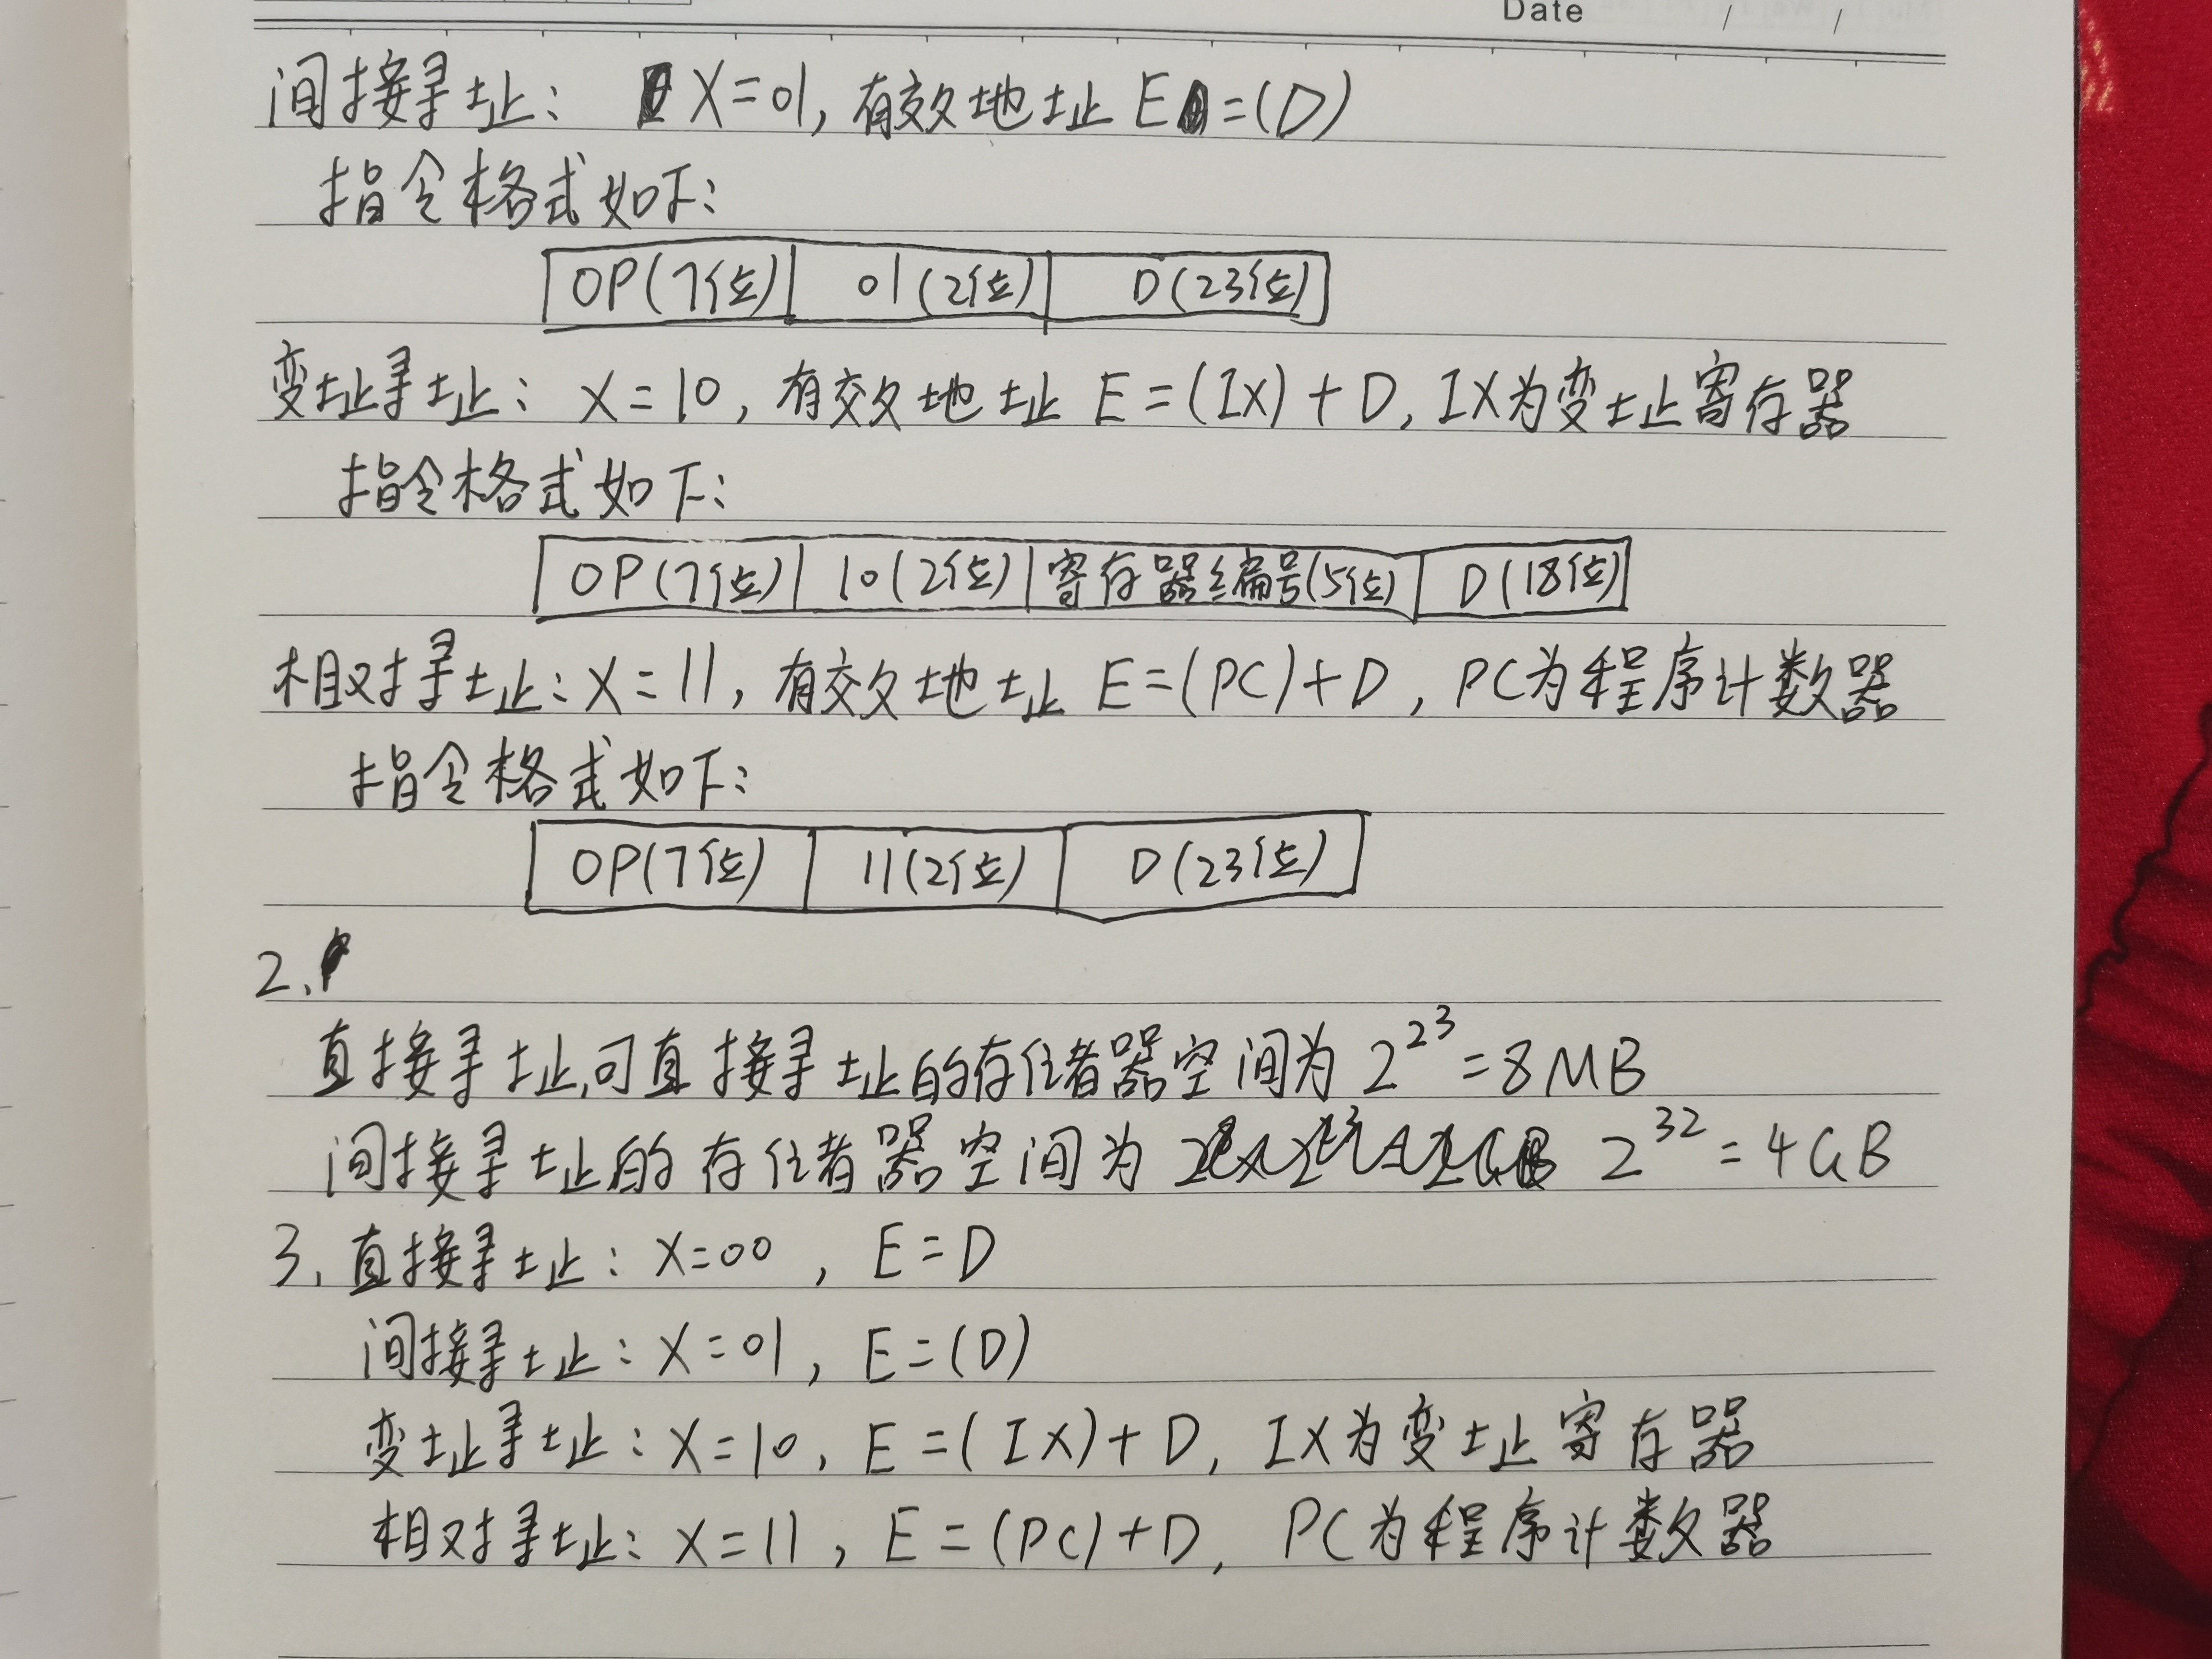 Date / /
间接寻址： X=01, 有效地址 E=(D)
指令格式如下：
OP(7位) 01(2位) D(23位)
变址寻址： X=10, 有效地址 E=(IX)+D, IX为变址寄存器
指令格式如下：
OP(7位) 10(2位) 寄存器编号(5位) D(18位)
相对寻址：X=11, 有效地址 E=(PC)+D, PC为程序计数器
指令格式如下：
OP(7位) 11(2位) D(23位)
2.
直接寻址,可直接寻址的存储器空间为 2^23=8MB
间接寻址的存储器空间为 2^32=4GB
3. 直接寻址：X=00, E=D
间接寻址：X=01, E=(D)
变址寻址：X=10, E=(IX)+D, IX为变址寄存器
相对寻址：X=11, E=(PC)+D, PC为程序计数器